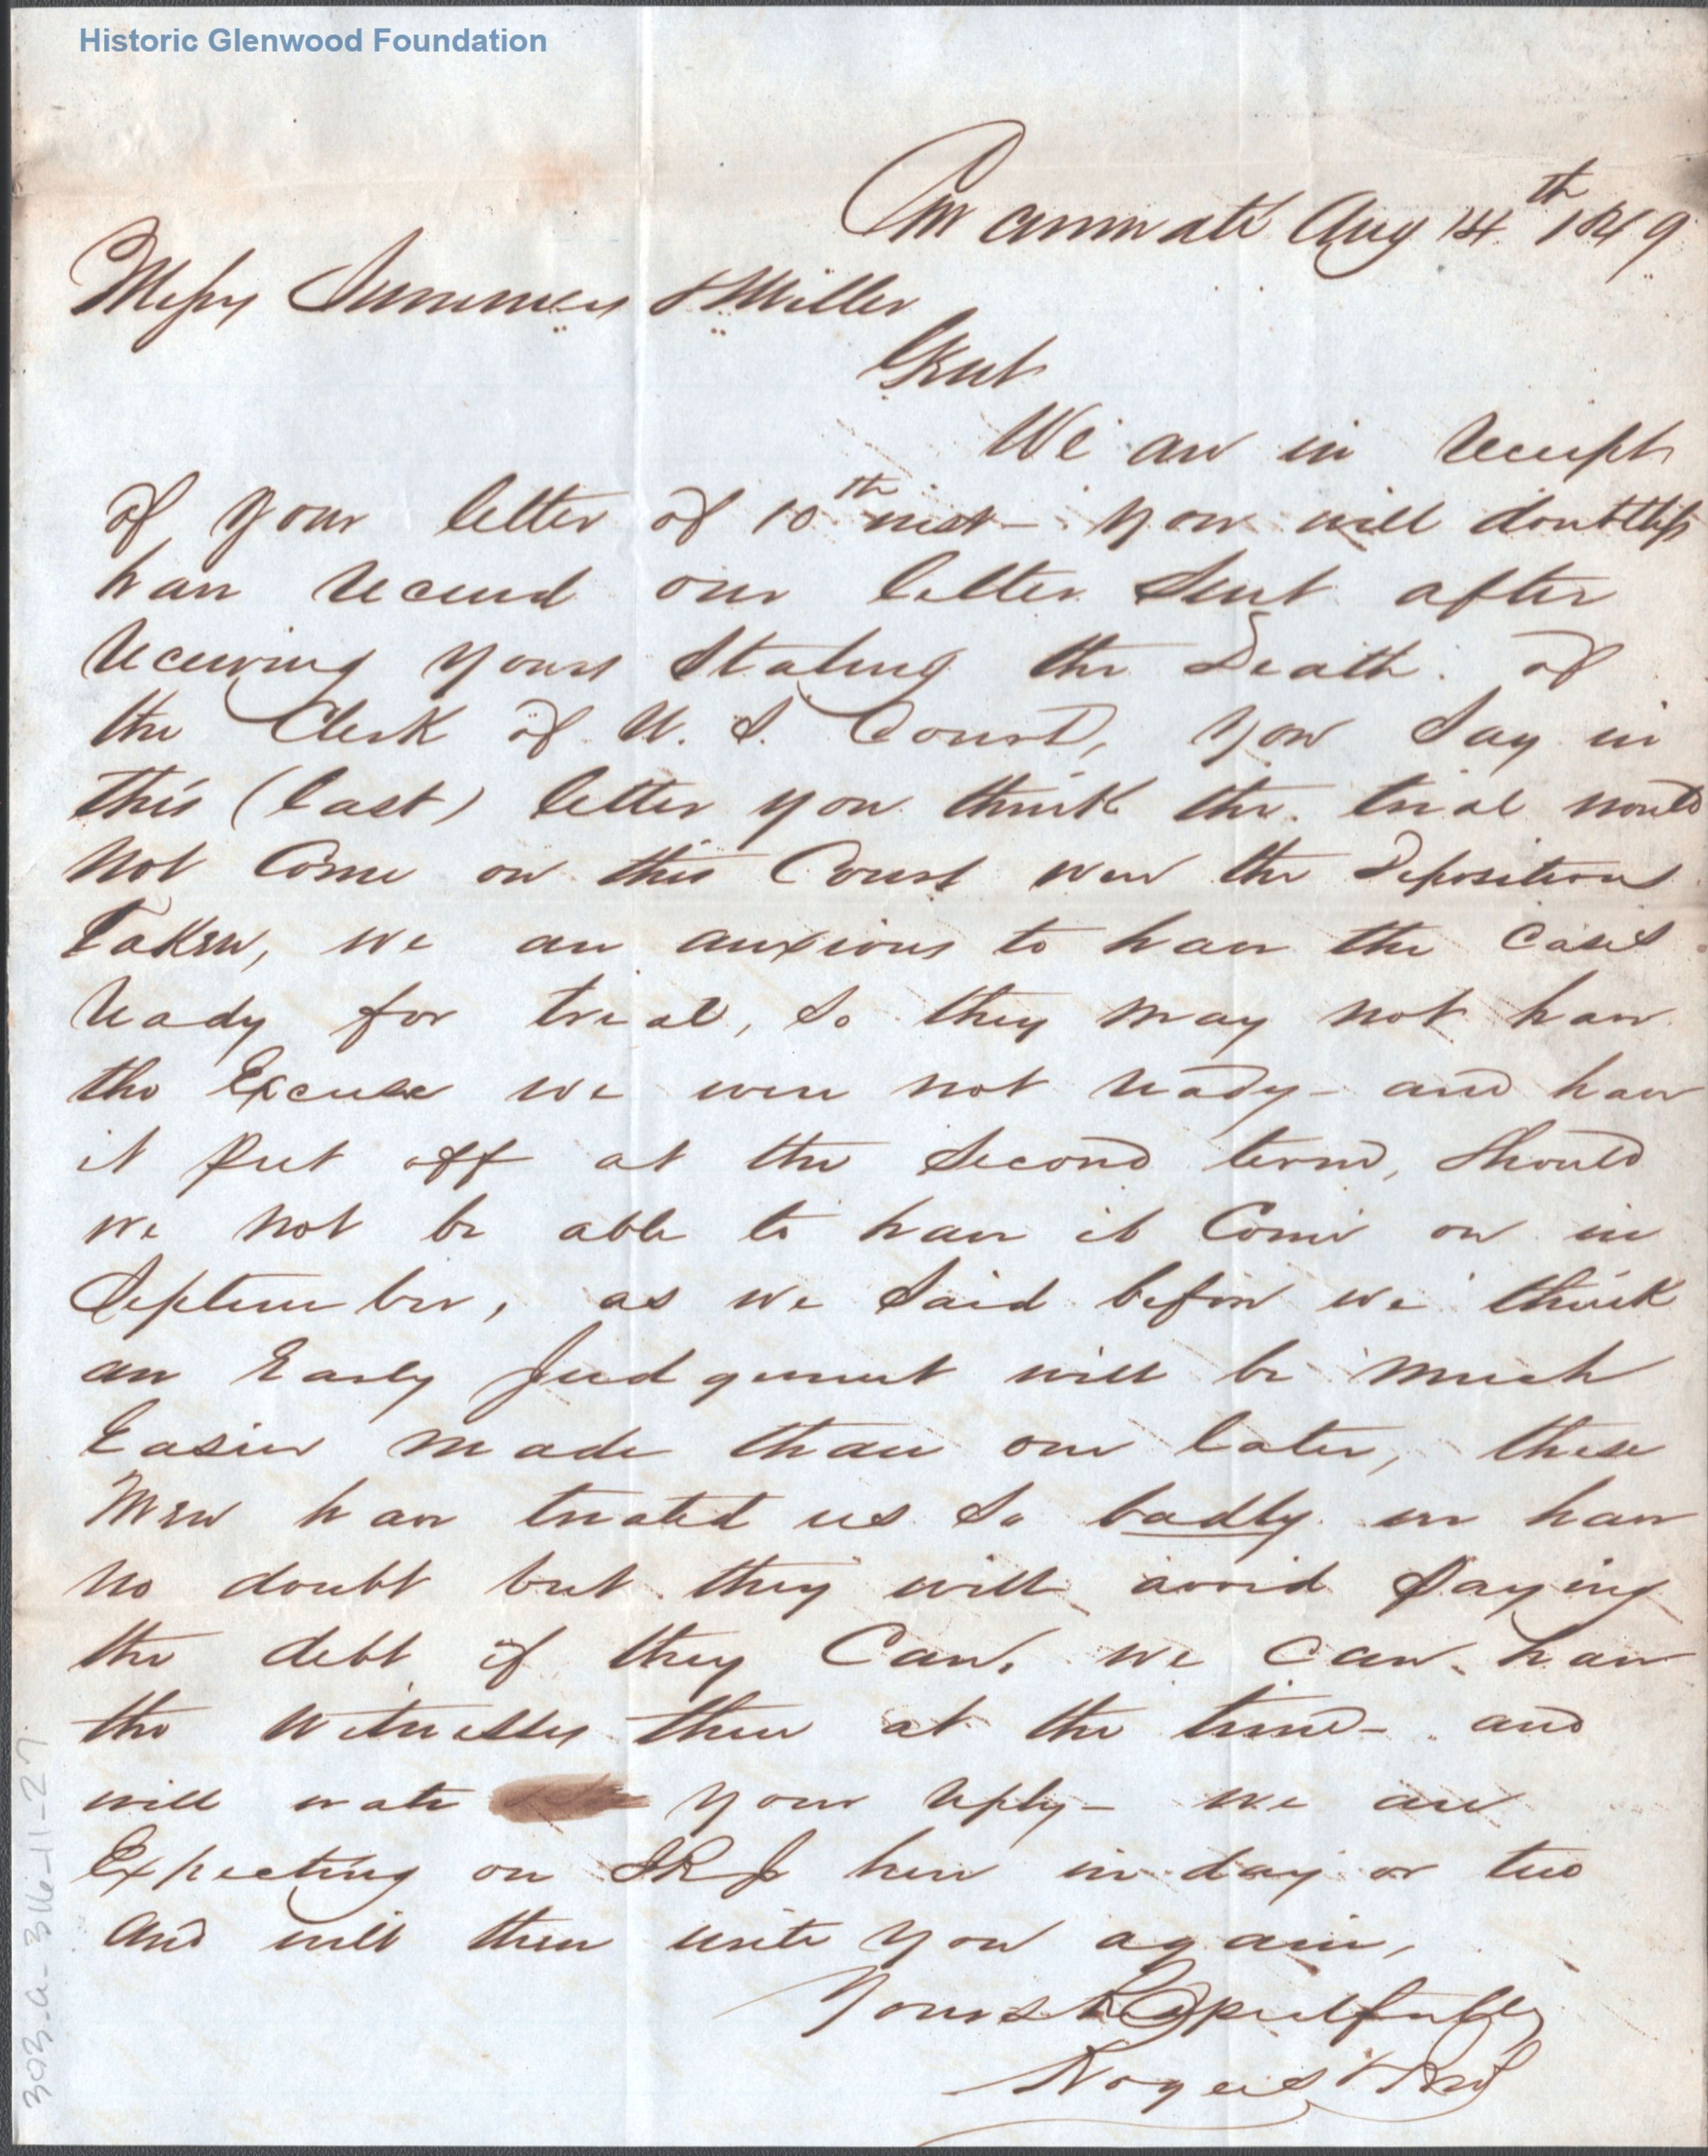 Historic Glenwood Foundation
Cincinnati Aug 14th 1849
Messrs Summers & Miller
Gent
We are in receipt
of your letter of 10th inst - you will doubtless
have received our letter sent after
receiving yours stating the Death of
the Clerk of U. S. Court, you say in
this (last) letter you think the trial would
not come on this Court were the Depositions
Taken, we are anxious to have the cases
ready for trial, so they may not have
the Excuse we were not ready - and have
it put off at the second term, should
we not be able to have it come on in
September, as we said before we think
an Early Judgement will be much
Easier made than one later, these
Men have treated us so badly we have
no doubt but they will avoid paying
the debt if they Can, we can have
the witnesses there at the time - and
will wate your reply - we are
Expecting our here in day or two
and will then write you again,
Yours Respectfully
303-a-316-11-27